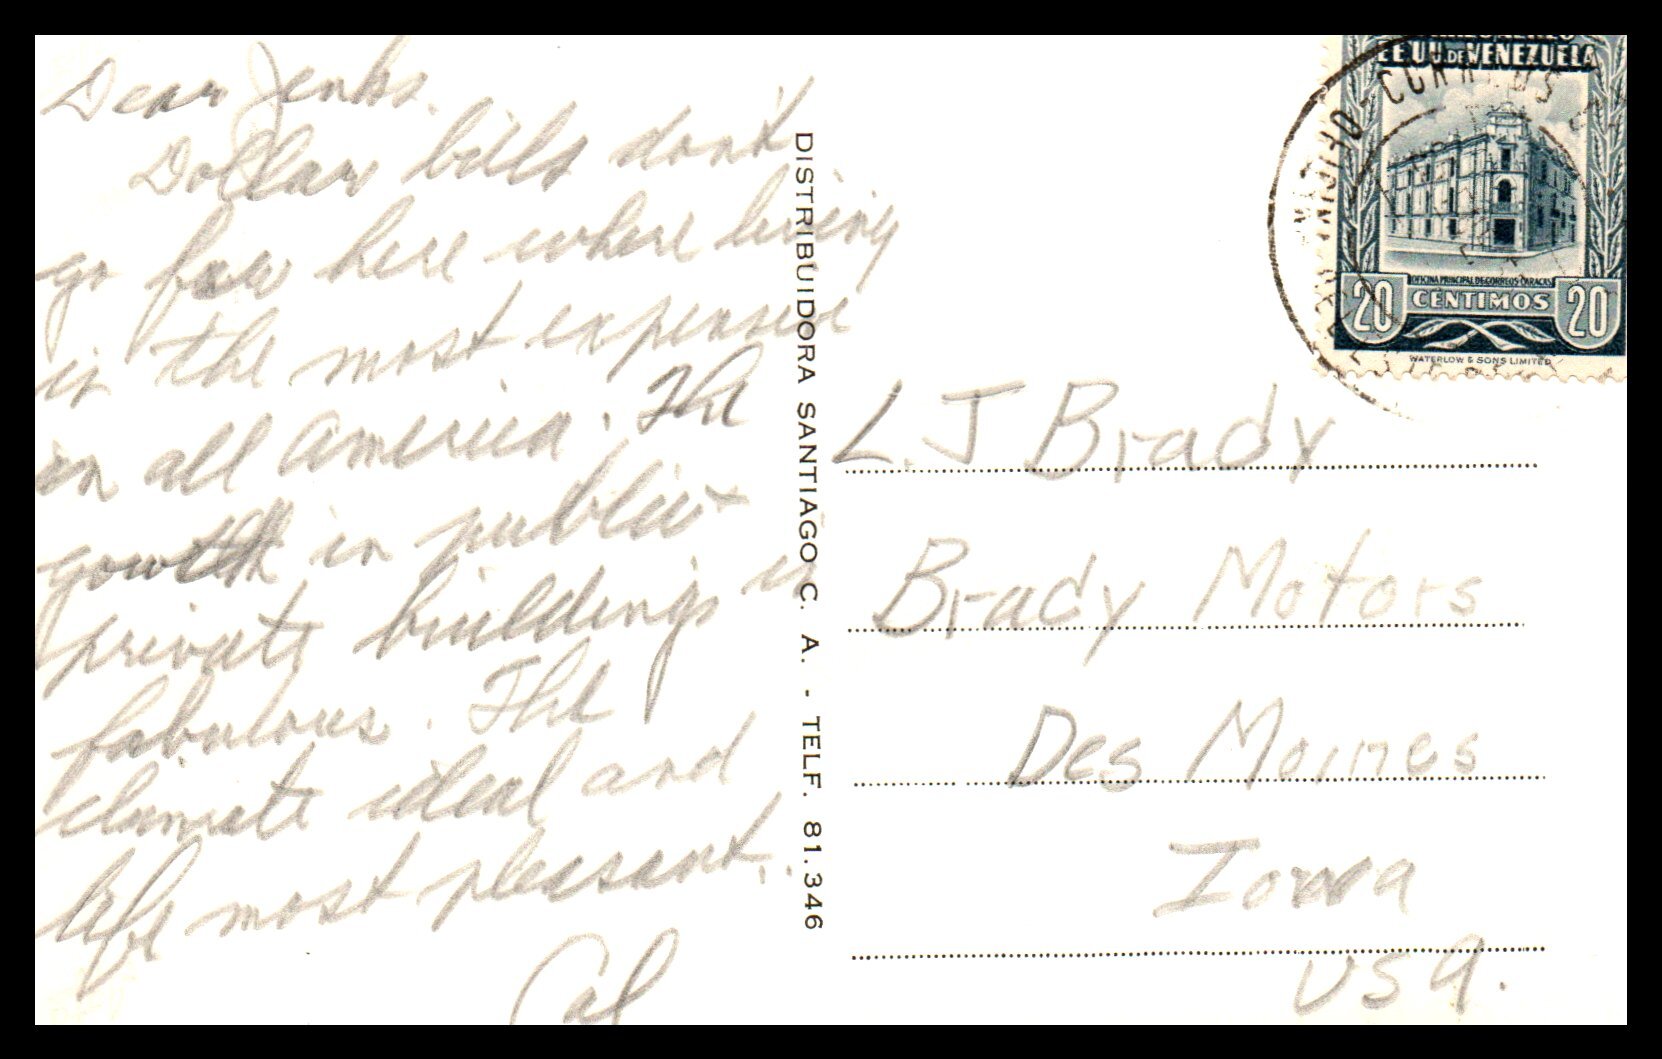 Dear Jenks.
Dollar bills don't
go far here where living
is the most expensive
in all America. The
growth in public +
private buildings is
fabulous. The
climate ideal and
life most pleasant.
Cal
DISTRIBUIDORA SANTIAGO C. A. - TELF. 81.346
EE.UU. DE VENEZUELA
OFICINA PRINCIPAL DE CORREOS CARACAS
20 CENTIMOS 20
WATERLOW & SONS LIMITED
L.J Brady
Brady Motors
Des Moines
Iowa
USA.